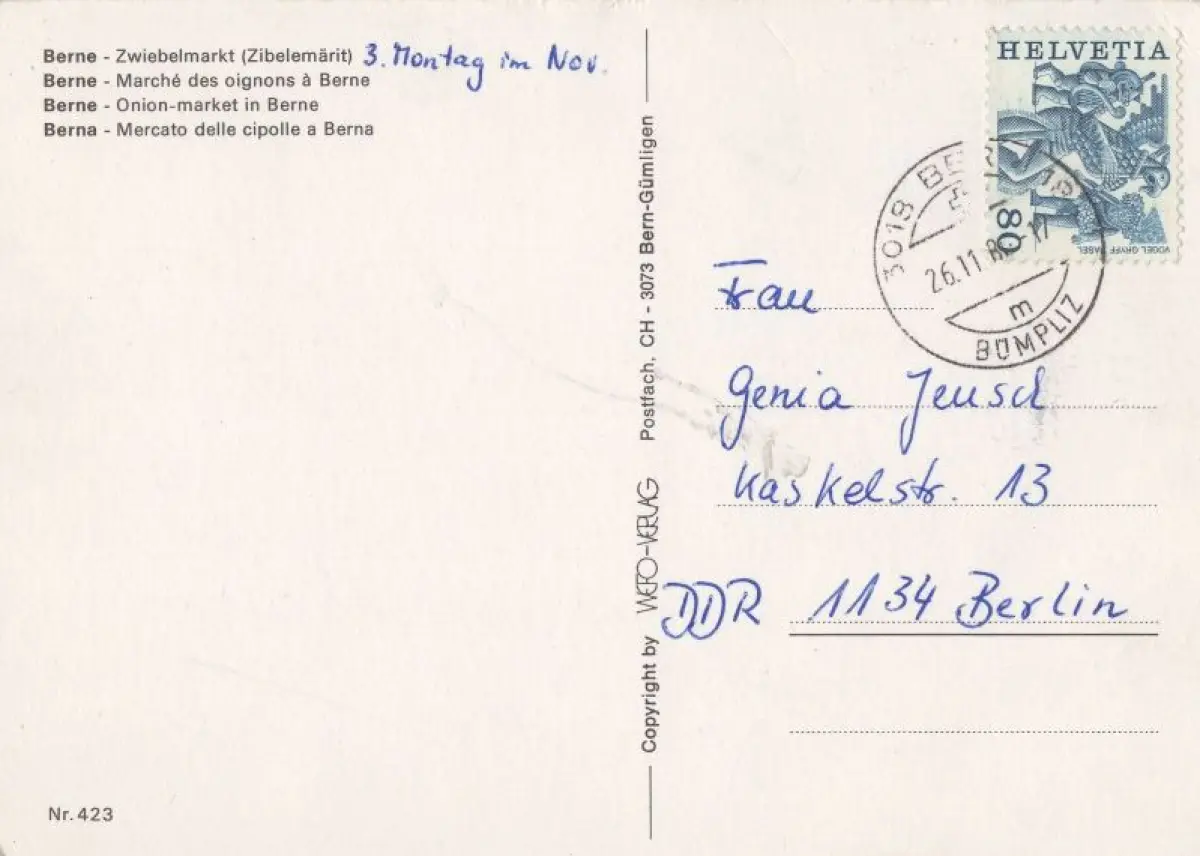 Berne - Zwiebelmarkt (Zibelemärit) 3. Montag im Nov.
Berne - Marché des oignons à Berne
Berne - Onion-market in Berne
Berna - Mercato delle cipolle a Berna
Nr. 423
Copyright by WEFO-VERLAG Postfach, CH - 3073 Bern-Gümligen
HELVETIA
80
VOGEL GRYFF BASEL
3018
26.11
-17
m
BÜMPLIZ
Frau
Genia Jeusch
Kaskelstr. 13
DDR 1134 Berlin